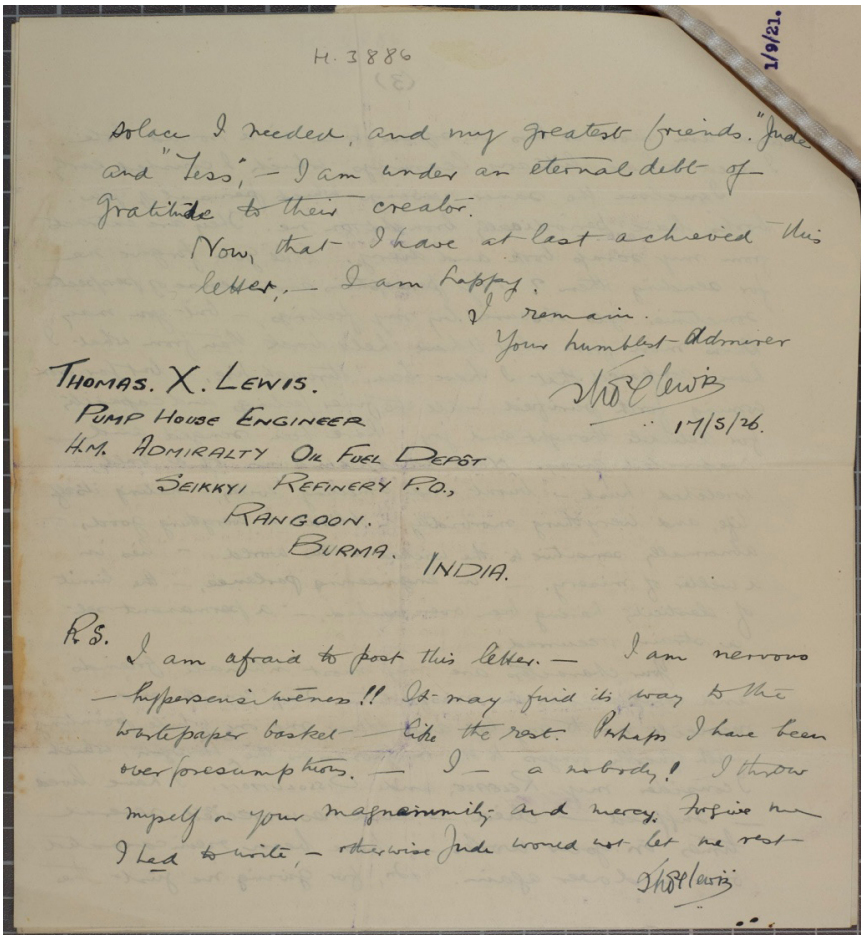 H. 3886
1/9/21.
solace I needed, and my greatest friends. "Jude
and "Tess", — I am under an eternal debt of
Gratitude to their creator.
Now, that I have at last achieved this
letter, — I am happy.
I remain.
Your humblest Admirer
Thos X Lewis
17/5/26.
THOMAS. X. LEWIS.
PUMP HOUSE ENGINEER
H.M. ADMIRALTY OIL FUEL DEPÔT
SEIKKYI REFINERY P.O.,
RANGOON.
BURMA.
INDIA.
P.S.
I am afraid to post this letter. — I am nervous
— hypersensitiveness!! It may find its way to the
wastepaper basket — like the rest. Perhaps I have been
overpresumptious. — I — a nobody! I throw
myself on your magnanimity and mercy. Forgive me
I had to write, — otherwise Jude would not let me rest —
Thos X Lewis